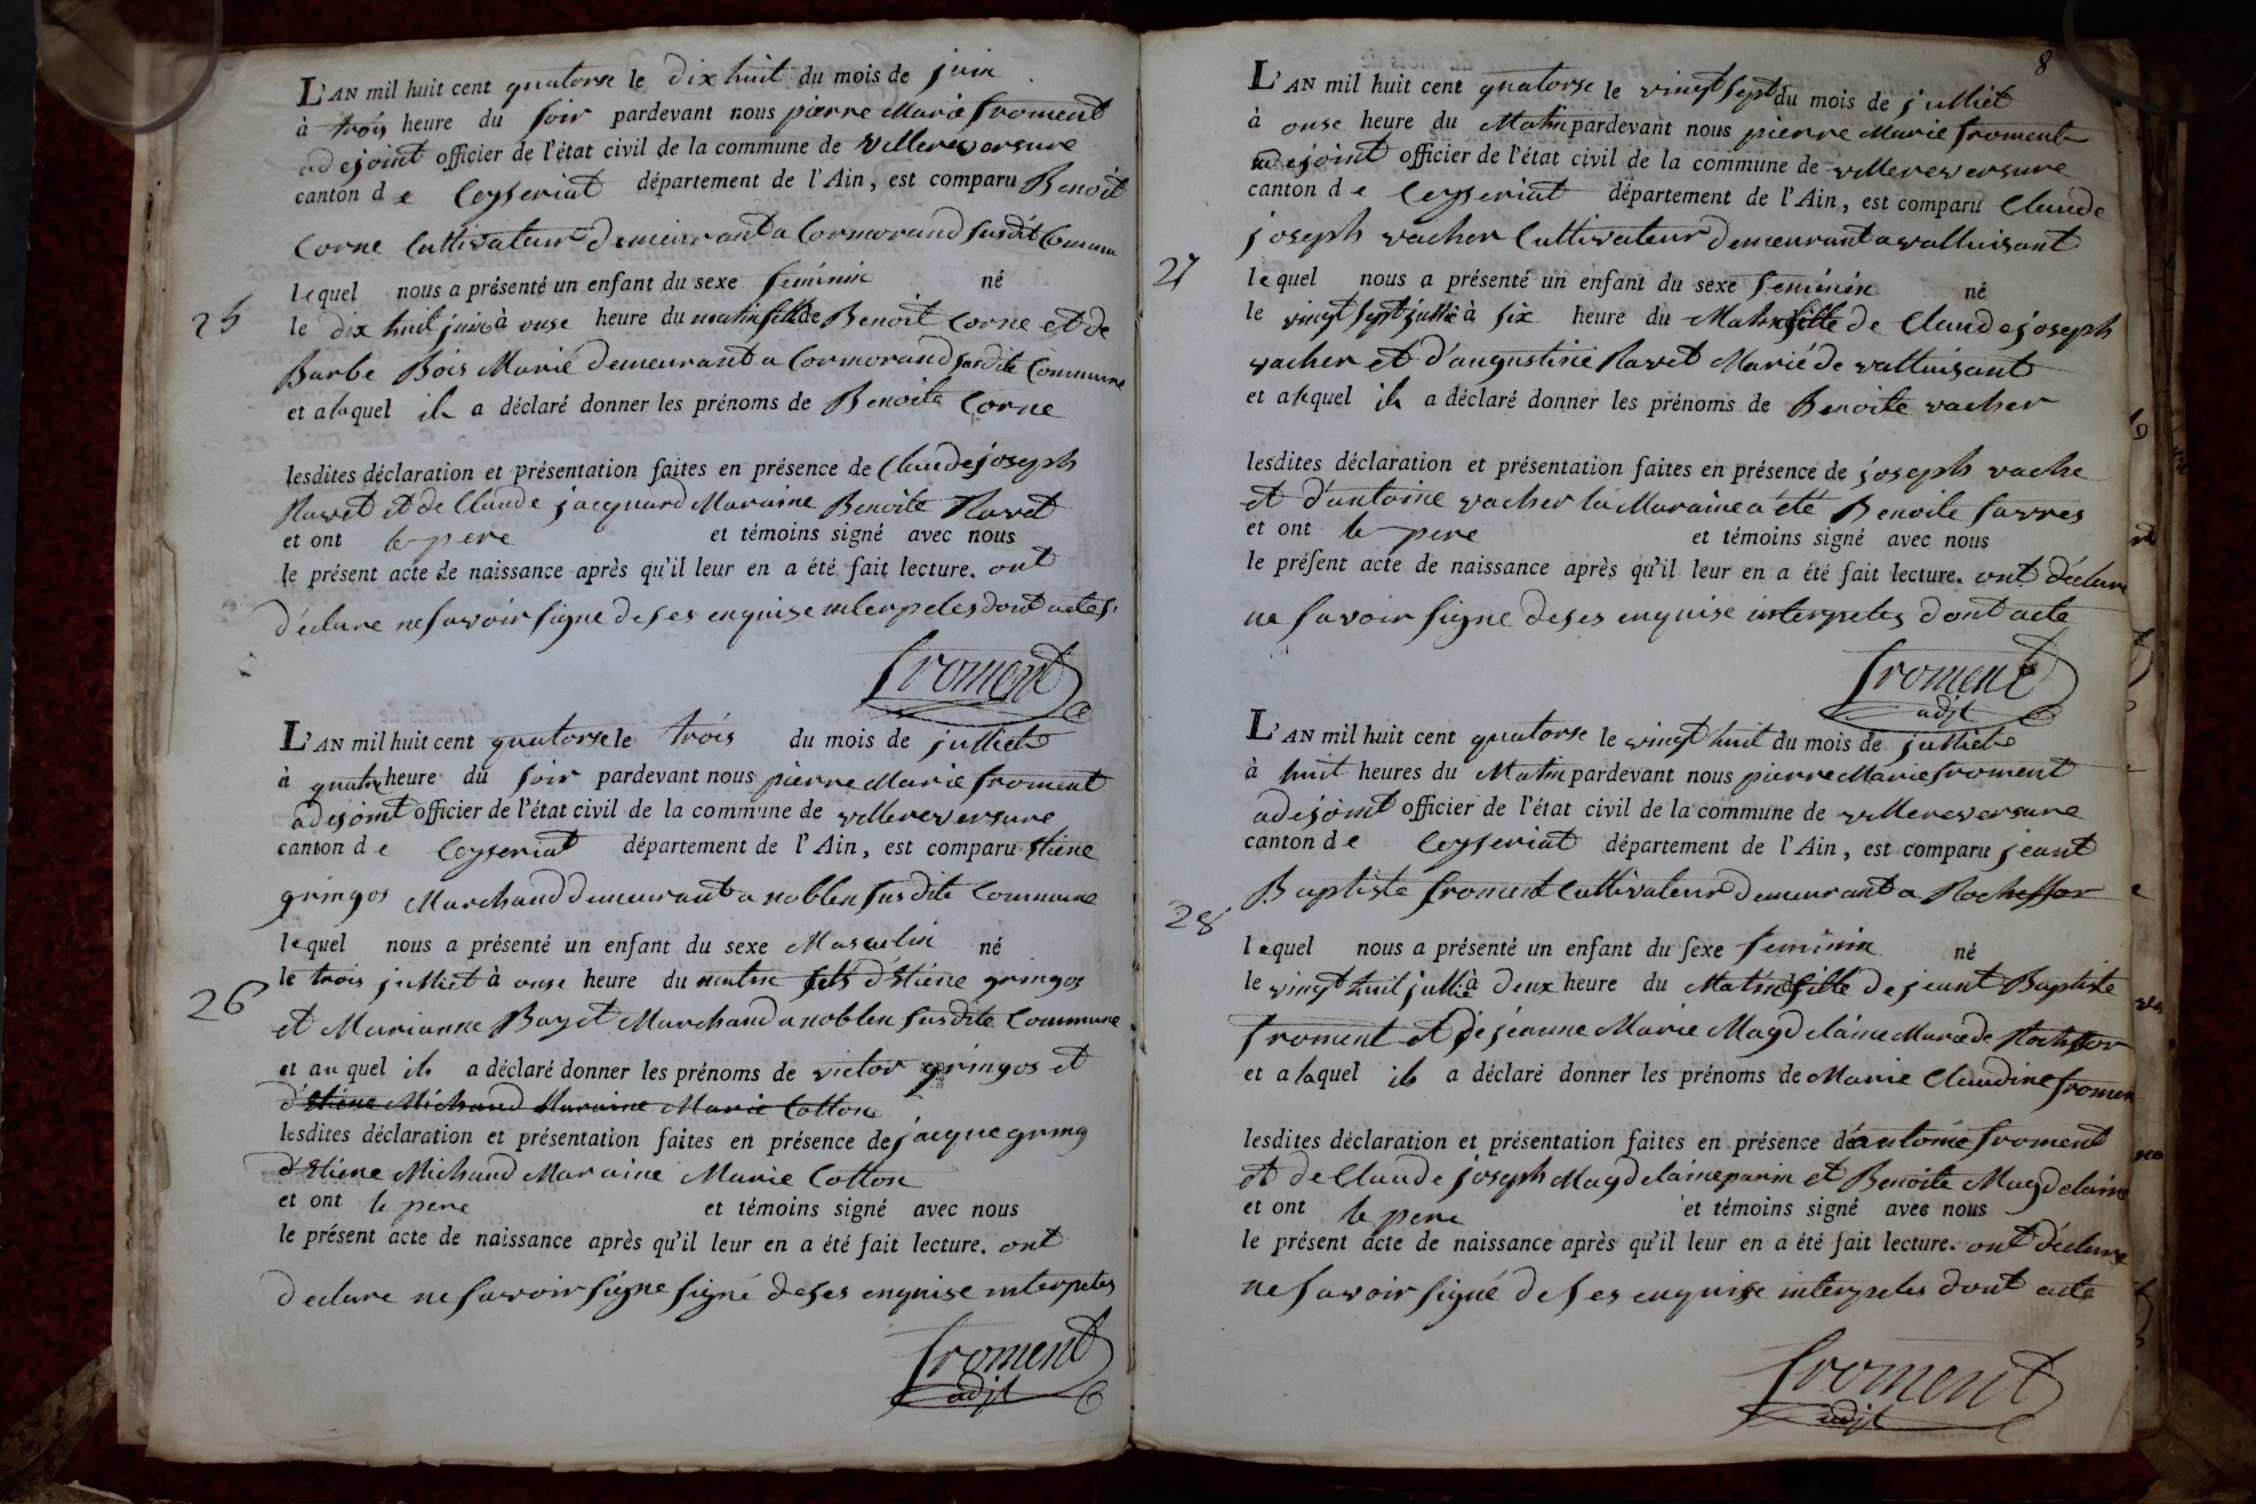 L'AN mil huit cent quatorse le dix huit du mois de juin
à trois heure du soir pardevant nous pierre Marie froment
adejoint officier de l'état civil de la commune de villereversure
canton de Ceyseriat département de l'Ain, est comparu Benoit
Corne Cultivateur demeurant a Cormorand susdit Commun
lequel nous a présenté un enfant du sexe feminin né
25
le dix huit juin à onse heure du matin fille de Benoit Corne et de
Barbe Bois Marié demeurant a Cormorand susdite Commune
et a laquel il a déclaré donner les prénoms de Benoite Corne
lesdites déclaration et présentation faites en présence de Claude joseph
Ravet et de Claude jacquard Maraine Benoite Ravet
et ont le pere et témoins signé avec nous
le présent acte de naissance après qu'il leur en a été fait lecture. ont
déclare ne savoir signe de ses enquise interpeles dont acte
froment
L'AN mil huit cent quatorse le trois du mois de julliet
à quatre heure du soir pardevant nous pierre Marie froment
adejoint officier de l'état civil de la commune de villereversure
canton de Ceyseriat département de l'Ain, est comparu Etiene
gringos Marchand demeurant a noblen susdite Commune
lequel nous a présenté un enfant du sexe Masculin né
le trois julliet à onse heure du matin fils d'Etiene gringos
26
et Marianne Bozet Marchand a noblen susdite Commune
et au quel il a déclaré donner les prénoms de victor gringos et
d'Etiene Michaud Maraine Marie Cotton
lesdites déclaration et présentation faites en présence de jacque gring
d'Etiene Michaud Maraine Marie Cotton
et ont le pere et témoins signé avec nous
le présent acte de naissance après qu'il leur en a été fait lecture. ont
declare ne savoir signe signé de ses enquise interpeles
froment
adjt
8
L'AN mil huit cent quatorse le vingt sept du mois de julliet
à onse heure du Matin pardevant nous pierre Marie froment
adejoint officier de l'état civil de la commune de villereversure
canton de Ceyseriat département de l'Ain, est comparu Claude
joseph vacher Cultivateur demeurant a valluisant
27
lequel nous a présenté un enfant du sexe feminin né
le vingt sept julliè à six heure du Matin fille de Claude joseph
vacher et d'augustine Ravet Marié de valluisant
et a lequel il a déclaré donner les prénoms de Benoite vacher
lesdites déclaration et présentation faites en présence de joseph vache
et d'antoine vacher la Maraine a été Benoite favres
et ont le pere et témoins signé avec nous
le présent acte de naissance après qu'il leur en a été fait lecture. ont déclare
ne savoir signe de ses enquise interpeles dont acte
froment
adjt
L'AN mil huit cent quatorse le vingt huit du mois de julliet
à huit heures du Matin pardevant nous pierre Marie froment
adejoint officier de l'état civil de la commune de villereversure
canton de Ceyseriat département de l'Ain, est comparu jeant
Baptiste froment Cultivateur demeurant a Rocheffor
28
lequel nous a présenté un enfant du sexe feminin né
le vingt huit julliè à deux heure du Matin fille de jeant Baptiste
froment et de jeanne Marie Magdelaine Marié de Rocheffor
et a laquel il a déclaré donner les prénoms de Marie Claudine fromen
lesdites déclaration et présentation faites en présence de antoine froment
et de Claude joseph Magdelaine parin et Benoite Magdelaine
et ont le pere et témoins signé avec nous
le présent acte de naissance après qu'il leur en a été fait lecture. ont déclare
ne savoir signé de ses enquise interpeles dont acte
froment
adjt